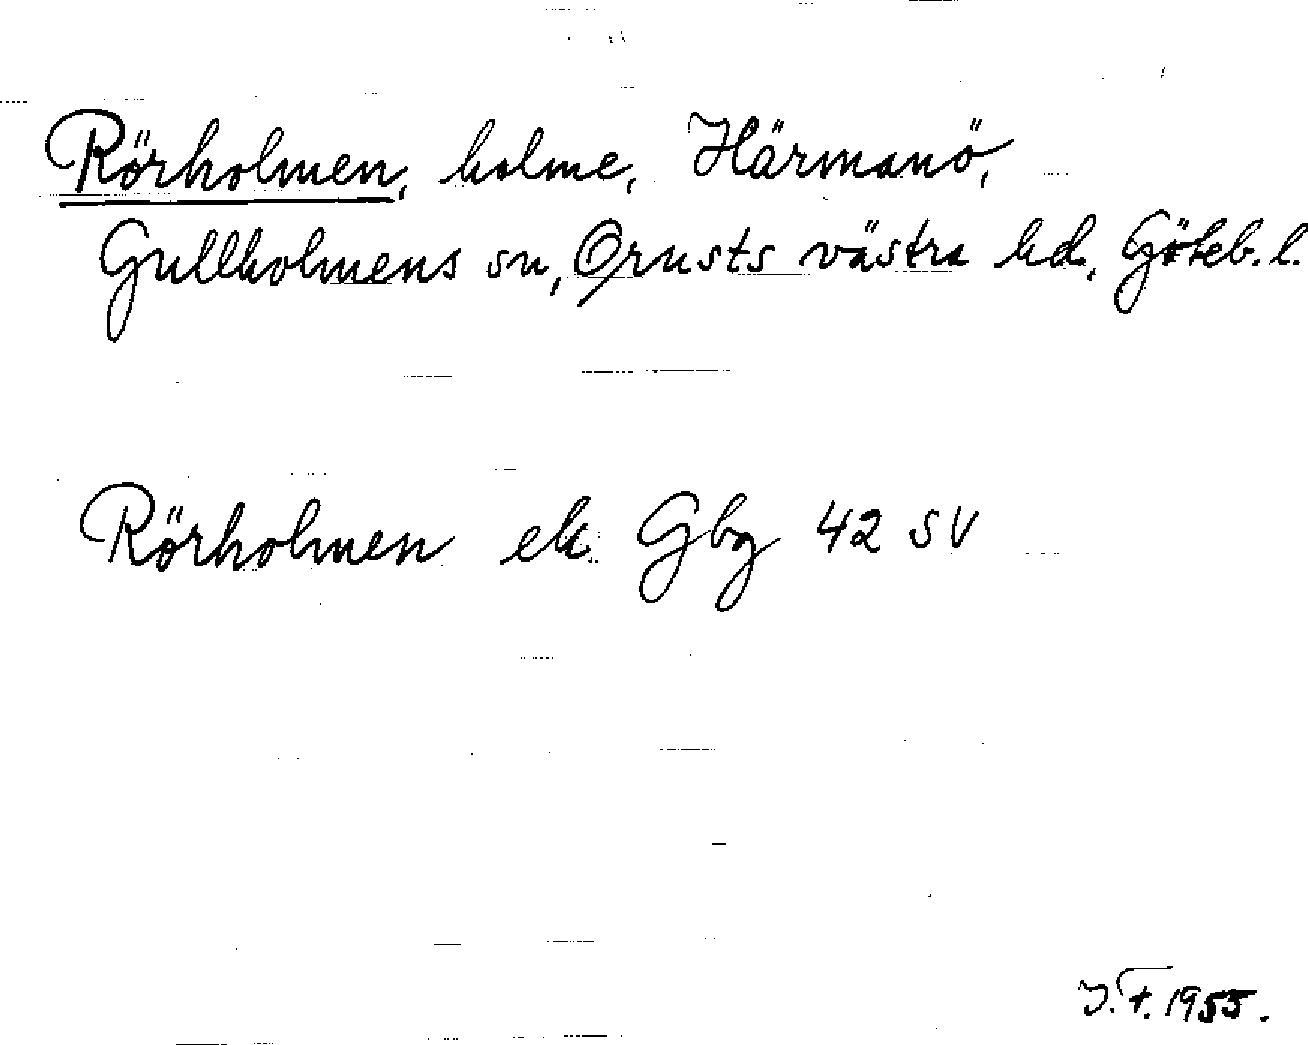 Rörholmen, holme, Härmanö,
Gullholmens sn, Orusts västra hd, Göteb. l.
Rörholmen ek Gbg 42 SV
J.F. 1955.